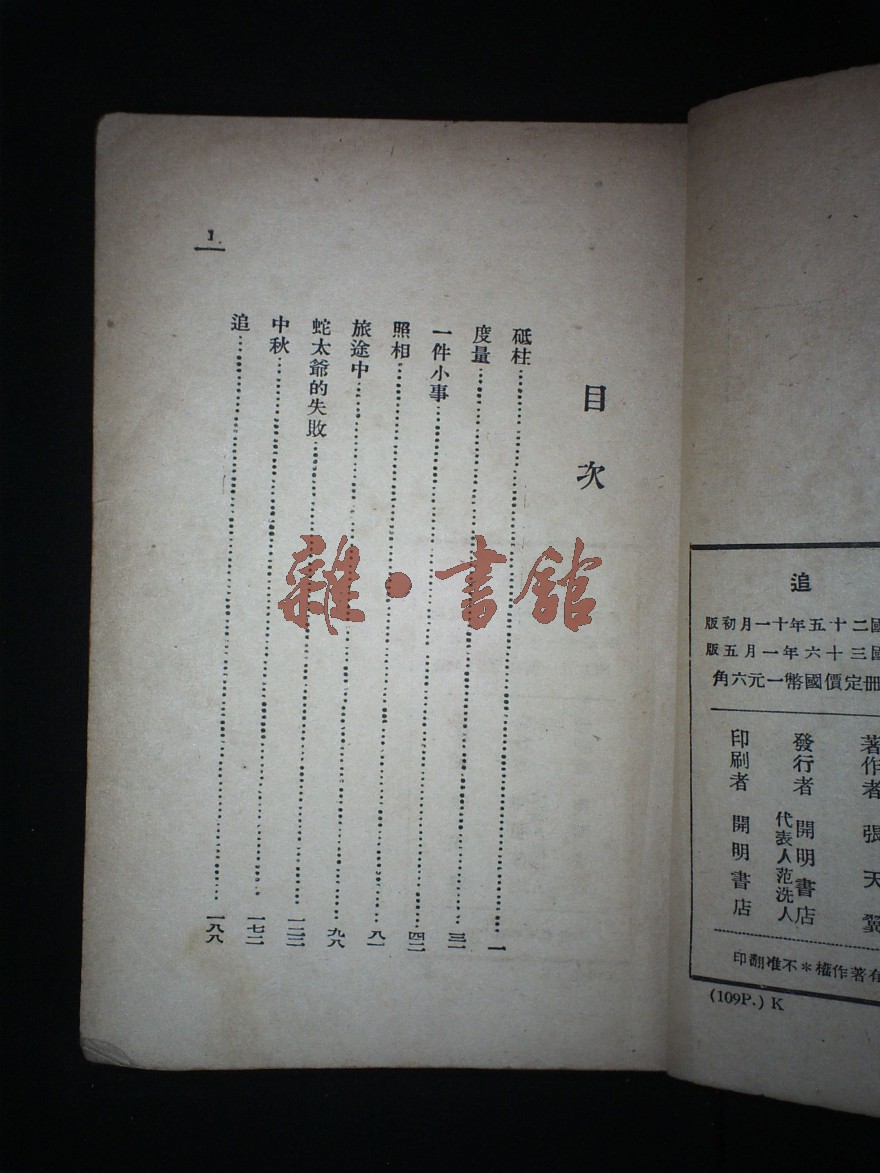 目次
砥柱……一
度量……三一
一件小事……四二
照相……八一
旅途中……九八
蛇太爺的失敗……
中秋……一七二
追……一八八
1
追
國二十五年十一月初版
國三十六年一月五版
冊定價國幣一元六角
著作者 張天翼
發行者 開明書店
代表人范洗人
印刷者 開明書店
有著作權*不准翻印
(109P.) K
雜·書館